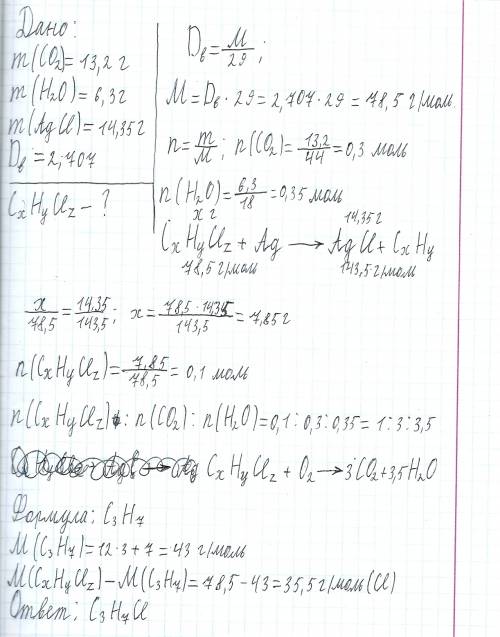 Дано:
m(CO₂)=13,2 г
m(H₂O)=6,3г
m(AgCl)=14,35г
Dв=2,707
CxHyClz - ?
Dв=M/29;
M=Dв·29=2,707·29=78,5 г/мол.
n=m/M; n(CO₂)=13,2/44=0,3 моль
n(H₂O)=6,3/18=0,35 моль
x г 14,35г
CxHyClz+Ag⟶AgCl+CxHy
78,5г/моль 143,5г/моль
x/78,5=14,35/143,5; x=78,5·14,35/143,5=7,85г
n(CxHyClz)=7,85/78,5=0,1 моль
n(CxHyClz):n(CO₂):n(H₂O)=0,1:0,3:0,35=1:3:3,5
CxHyClz+O₂⟶3CO₂+3,5H₂O
Формула: C₃H₇
M(C₃H₇)=12·3+7=43 г/моль
M(CxHyClz)-M(C₃H₇)=78,5-43=35,5г/моль(Cl)
Ответ: C₃H₇Cl